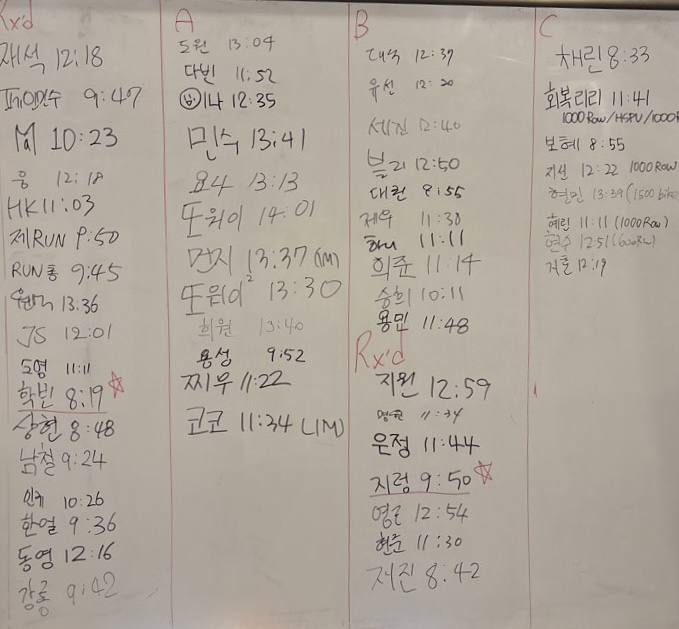 Rx'd
재석 12:18
페이민수 9:47
10:23
웅 12:18
HK 11:03
제RUN 9:50
RUN홍 9:45
13:36
JS 12:01
도영 11:11
학빈 8:19 ☆
상현 8:48
남철 9:24
인케 10:26
환열 9:36
동영 12:16
강룡 9:42
A
도원 13:04
다빈 11:52
이나 12:35
민수 13:41
요4 13:13
또위이 14:01
먼지 13:37 (LM)
또위이² 13:30
희원 13:40
용성 9:52
찌무 11:22
코코 11:34 L(M)
B
12:37
유선 12:20
세진 12:40
블리 12:50
대권 8:55
제우 11:30
하니 11:11
희준 11:14
승희 10:11
용민 11:48
Rx'd
지원 12:59
11:34
은정 11:44
지렁 9:50 ☆
영근 12:54
현준 11:30
저진 8:42
C
채린 8:33
회복리리 11:41
1000 Row/HSPU/1000R
보혜 8:55
지선 12:22 1000 Row
현민 13:39 (1500 bike
혜린 11:11 (1000 Row)
현수 12:51
12:19